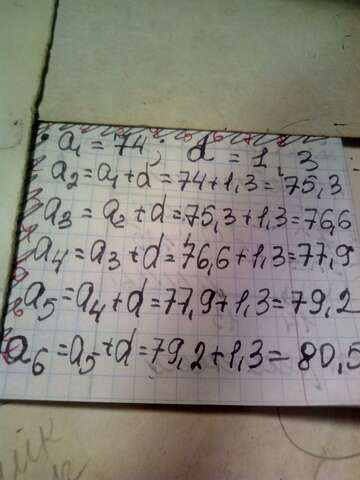 a1 = 74; d = 1,3
a2 = a1 + d = 74 + 1,3 = 75,3
a3 = a2 + d = 75,3 + 1,3 = 76,6
a4 = a3 + d = 76,6 + 1,3 = 77,9
a5 = a4 + d = 77,9 + 1,3 = 79,2
a6 = a5 + d = 79,2 + 1,3 = 80,5